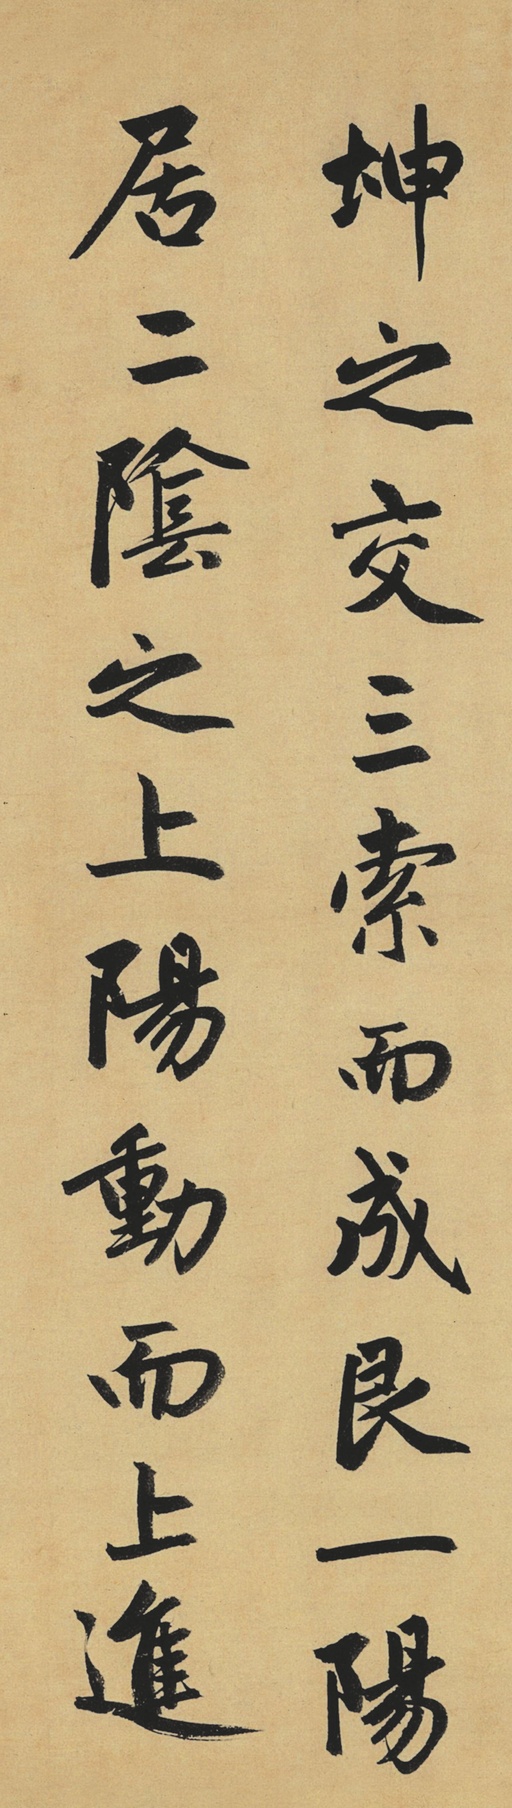 坤之交三索而成艮一陽
居二陰之上陽動而上進